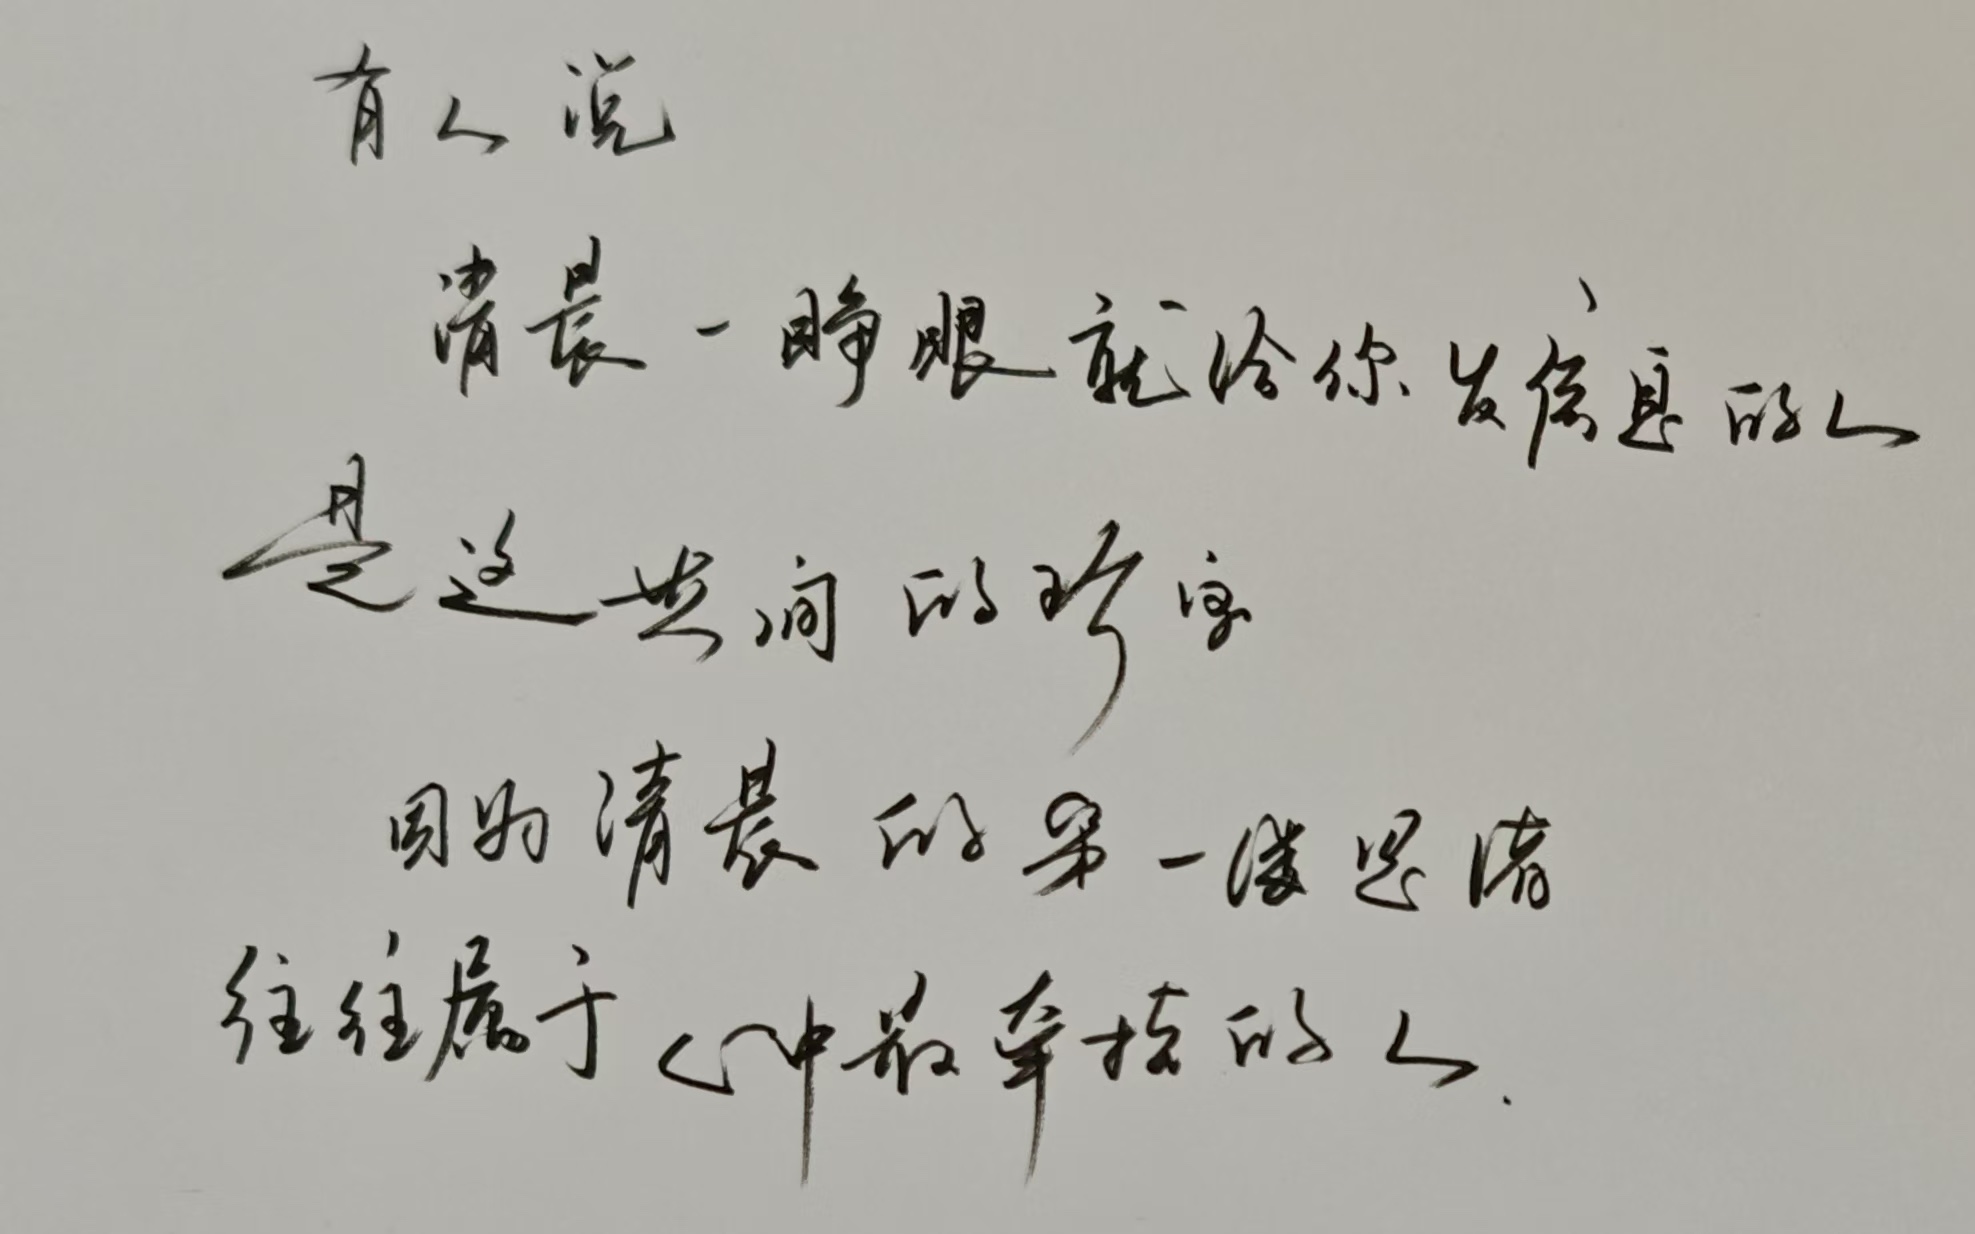 有人说
清晨一睁眼就给你发信息的人
是这世间的珍宝
因为清晨的第一缕思绪
往往属于心中最牵挂的人.